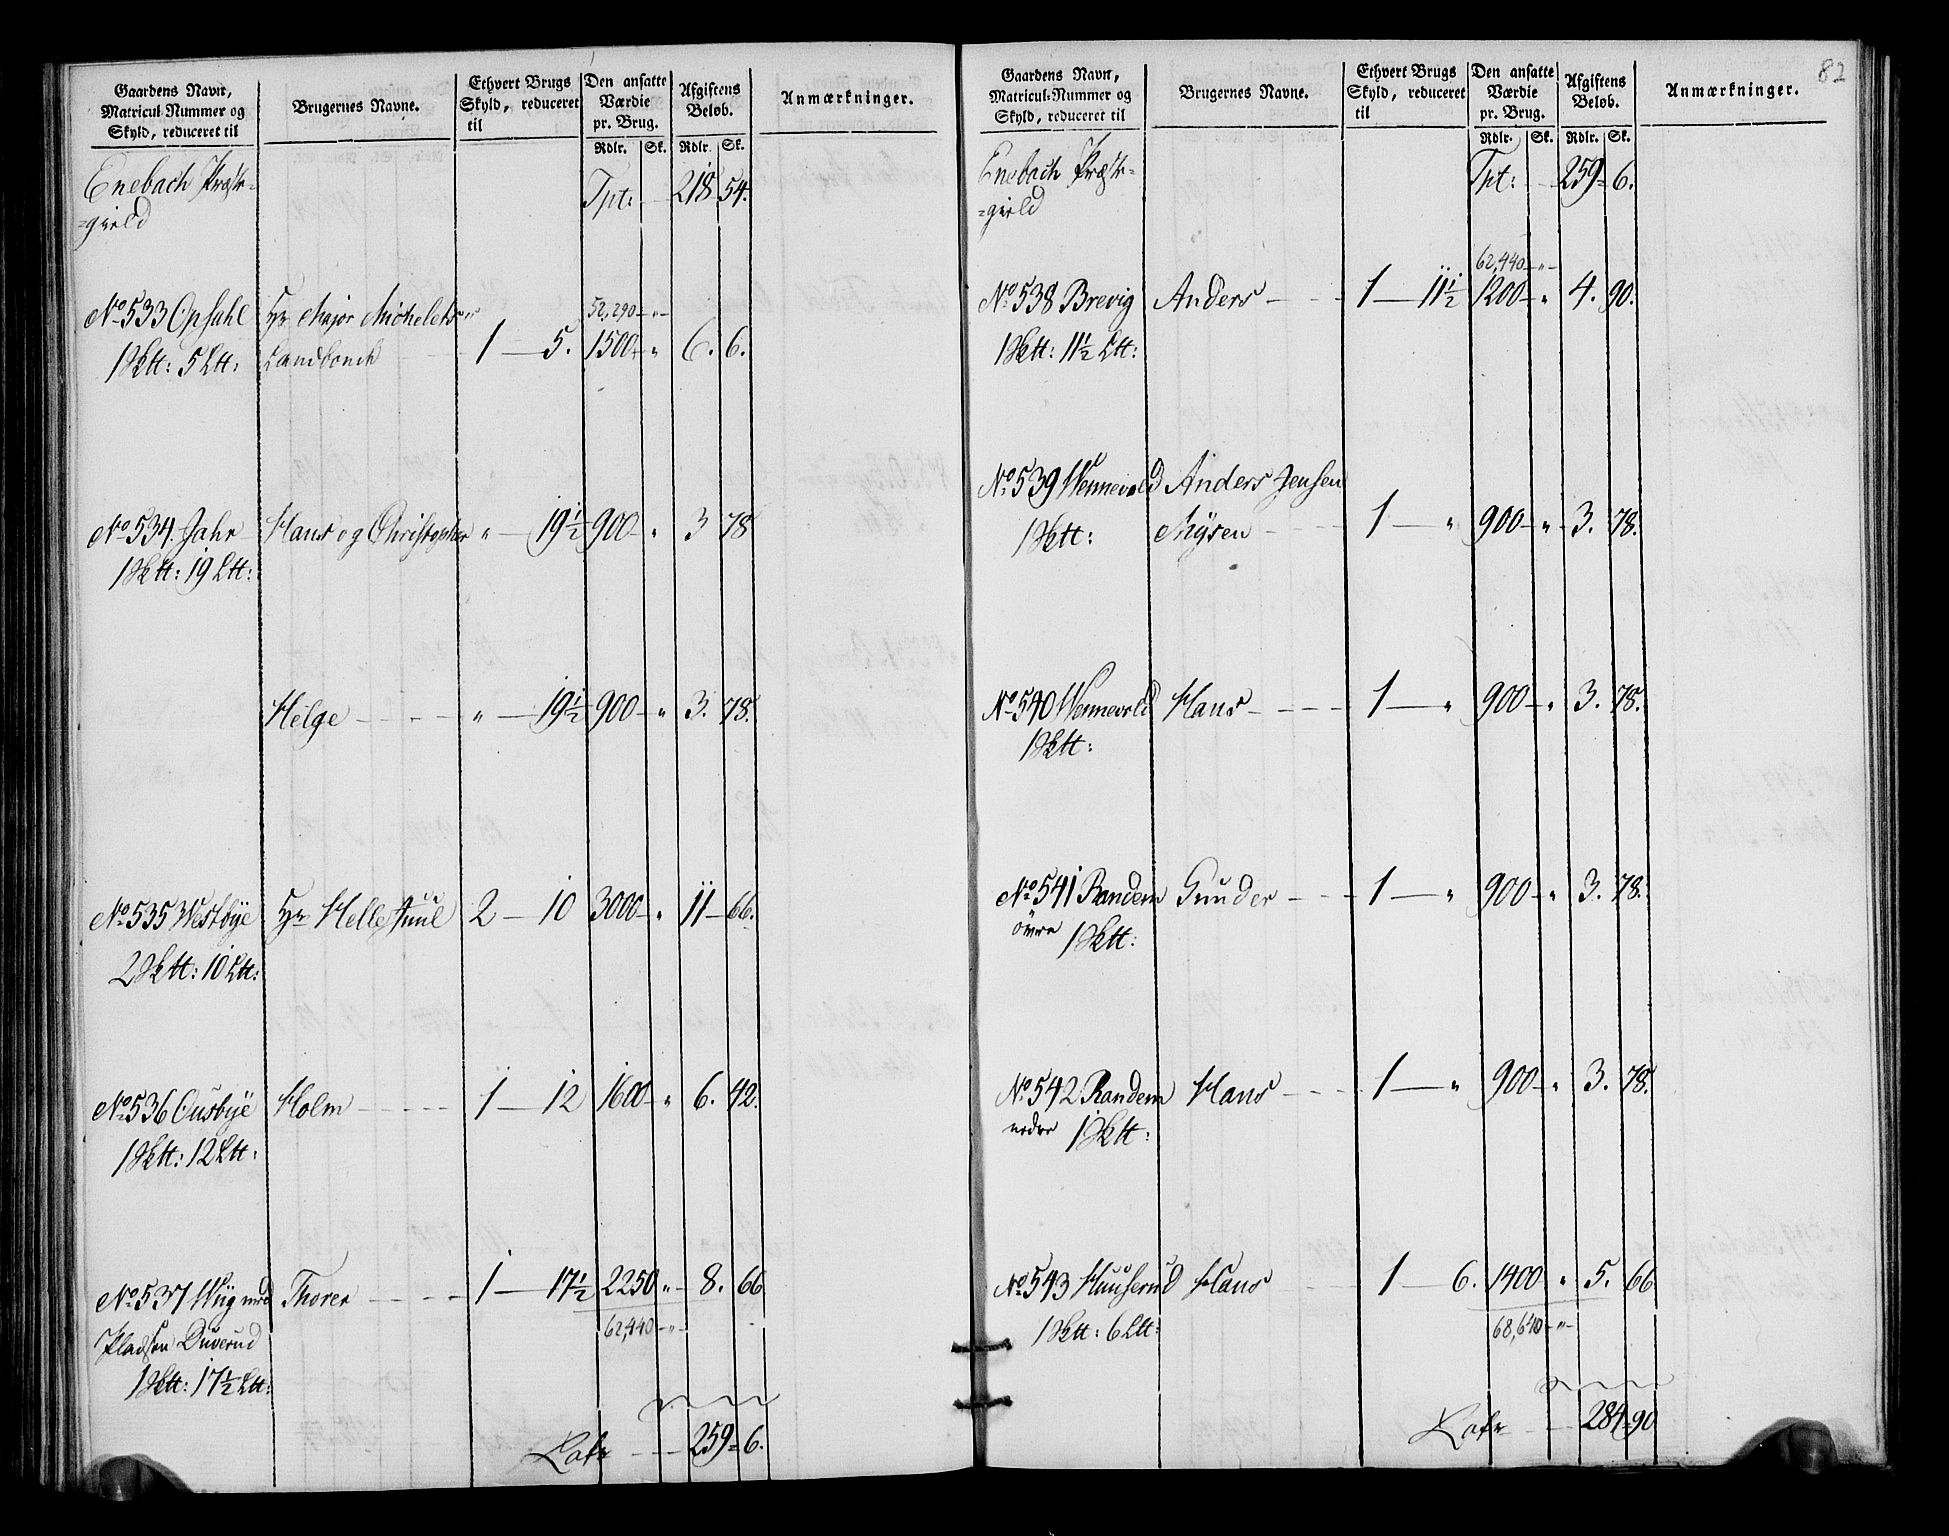 Gaardens Navn, Matricul-Nummer og Skyld, reduceret til | Brugernes Navne. | Ethvert Brugs Skyld, reduceret til | Den ansatte Værdie pr. Brug. | Afgiftens Beløb. | Anmærkninger.
Rdlr. | Sk. | Rdlr. | Sk.
Enebach Præste= Tpt: 218 54.
=gield
52,290 - " -
No 533 Opsahl Hr Major Michelets
1 Sktt: 5 Ltt: Landbonde 1 — 5. 1500 - " 6. 6.
No 534. Jahr Hans og Christopher " — 19½ 900 - " 3 78
1 Sktt: 19 Ltt:
Helge - - - - " — 19½ 900 - " 3. 78.
No 535 Westbye Hr Helle Juul 2 — 10 3000 - " 11 — 66.
2 Sktt: 10 Ltt:
No 536 Ousbye Holm - - - - 1 — 12 1600 - " 6. 42.
1 Sktt: 12 Ltt:
No 537 Wiig med Thorer - - - - 1 — 17½ 2250 " - 8. 66
Pladsen Duverud 62,440 - " -
1 Sktt: 17½ Ltt:
Late - - - 259 = 6.
82
Gaardens Navn, Matricul-Nummer og Skyld, reduceret til | Brugernes Navne. | Ethvert Brugs Skyld, reduceret til | Den ansatte Værdie pr. Brug. | Afgiftens Beløb. | Anmærkninger.
Rdlr. | Sk. | Rdlr. | Sk.
Enebach Præste= Tpt: - - 259 = 6.
=gield
62,440 - " -
No 538 Brevig Anders - - - - 1 — 11½ 1200 - " 4. 90.
1 Sktt: 11½ Ltt:
No 539 Wennevold Anders Jensen
1 Sktt: Mÿsen - - - - 1 — " 900 - " - 3. 78.
No 540 Wennevold Hans - - - - 1 — " 900 - " 3. 78.
1 Sktt:
No 541 Randem Gunder - - - 1 — " 900 - " 3. 78.
öwre 1 Sktt:
No 542 Randem Hans - - - - 1 — " 900 - " 3. 78.
nedre 1 Sktt:
No 543 Huuserud Hans - - 1 — 6. 1400 " 5. 66
1 Sktt: 6 Ltt: 68,640 - " -
Late - - 284 = 90